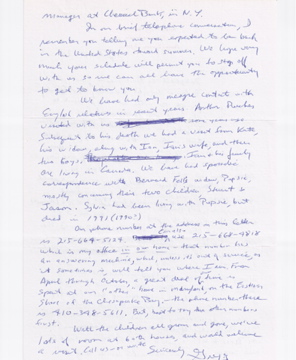 manager at Chemical Bank, in N.Y.
In our brief telephone conversation, I
remember you telling me you expected to be back
in the United States toward summer. We hope very
much your schedule will permit you to stop off
with us so we can all have the opportunity
to get to know you
We have had only meager contact with
English relatives in recent years. Arthur
visited with us some years ago.
Subsequent to his death we had a visit from Kate,
his widow, along with Ian, Ian's wife, and their
two boys. Ian & his family
are living in Canada. We have had sporadic
correspondence with Bernard widow, Popsie,
mostly concerning their two children Stuart &
Sylvia had been living with Popsie, but
died in 1991 (1990?)
Our phone number at the address in this letter
is 215-664-5134. 215-668-4818
which is my office in our home - that number has
an answering machine, which, unless it's out of service, as
it sometimes is, will tell you where I am. From
April through October, a great deal of time is
spent at our "other" home in Maryland, on the Eastern
Shore of the Chesapeake Bay - the phone number there
is 410-348-5611. But, best to try the other numbers
first.
With the children all grown and gone, we've
lots of room at both homes, and will welcome
a visit. Call us or write
Sincerely